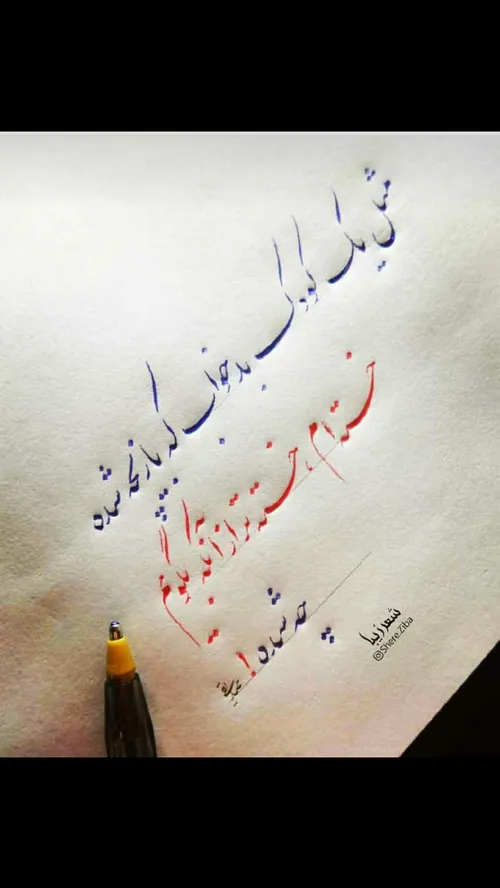 مثل یک کودک بدخواب که بازیچه شده
خسته ام، خسته تر از آنکه بگویم
چه شده !
شعر زیبا
@Shere.Ziba